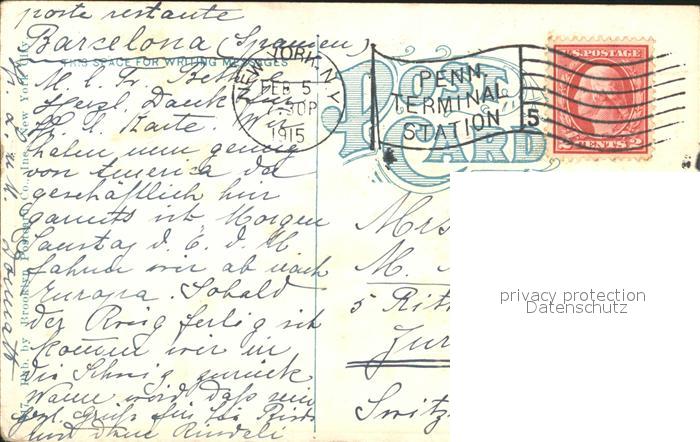 poste restante
Barcelona (Spanien)
THIS SPACE FOR WRITING MESSAGES
M. l. Fr.
Herzl. Dank
l. Karte. Wir
haben nun genug
von Amerika da
geschäftlich hier
garnichts ist. Morgen
Samstag d. 6. d. M
fahren wir ab nach
Europa. Sobald
der Krieg fertig ist
kommen wir in
die Schweiz zurück
Wann wird das sein
Grüße für
und
Pub. by Brooklyn Postcard Co., Inc. New York City
POST CARD
NEW YORK, N.Y.
FEB 5
30P
1915
PENN.
TERMINAL
STATION
5
U.S. POSTAGE
2 CENTS 2
Mrs
M.
5 Rit
Zur
Switz
privacy protection
Datenschutz